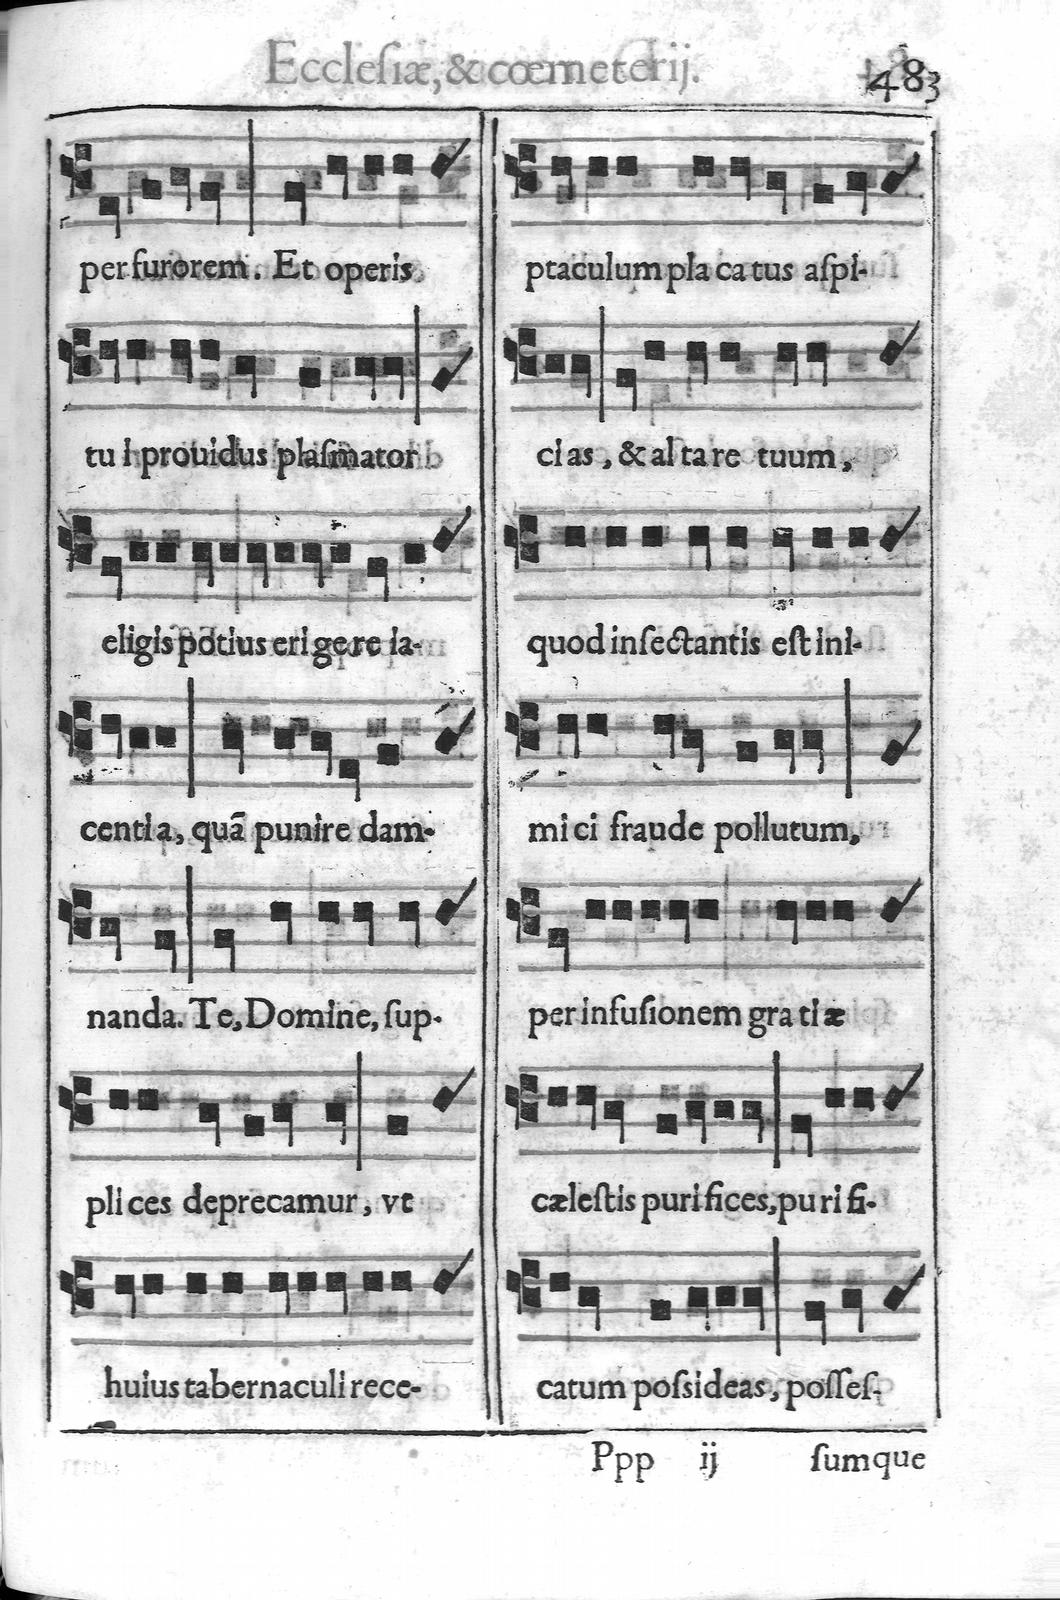 Ecclesiæ, & cœmeterij.
483
per furorem. Et operis
tui prouidus plasmator
eligis potius erigere ia-
centia, quã punire dam-
nanda. Te, Domine, sup-
plices deprecamur, vt
huius tabernaculi rece-
ptaculum placatus aspi-
cias, & altare tuum,
quod insectantis est ini-
mici fraude pollutum,
per infusionem gratiæ
cælestis purifices, purifi-
catum possideas, posses-
Ppp ij sumque